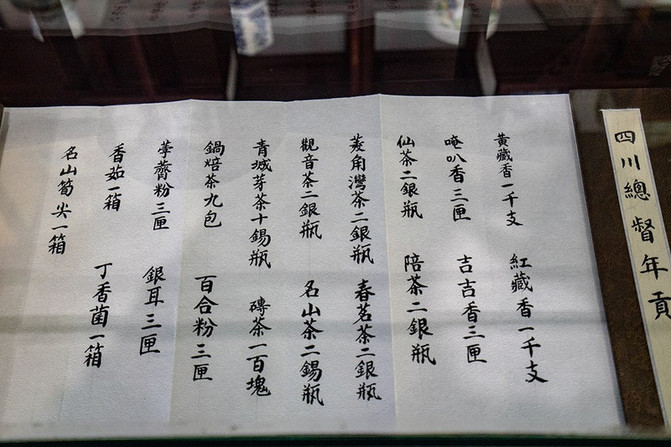 四川總督年貢
黃藏香一千支 紅藏香一千支
唵叭香三匣 吉吉香三匣
仙茶二銀瓶 陪茶二銀瓶
菱角灣茶二銀瓶 春茗茶二銀瓶
觀音茶二銀瓶 名山茶二錫瓶
青城芽茶十錫瓶 磚茶一百塊
鍋焙茶九包 百合粉三匣
荸薺粉三匣 銀耳三匣
香茹一箱 丁香菌一箱
名山筍尖一箱